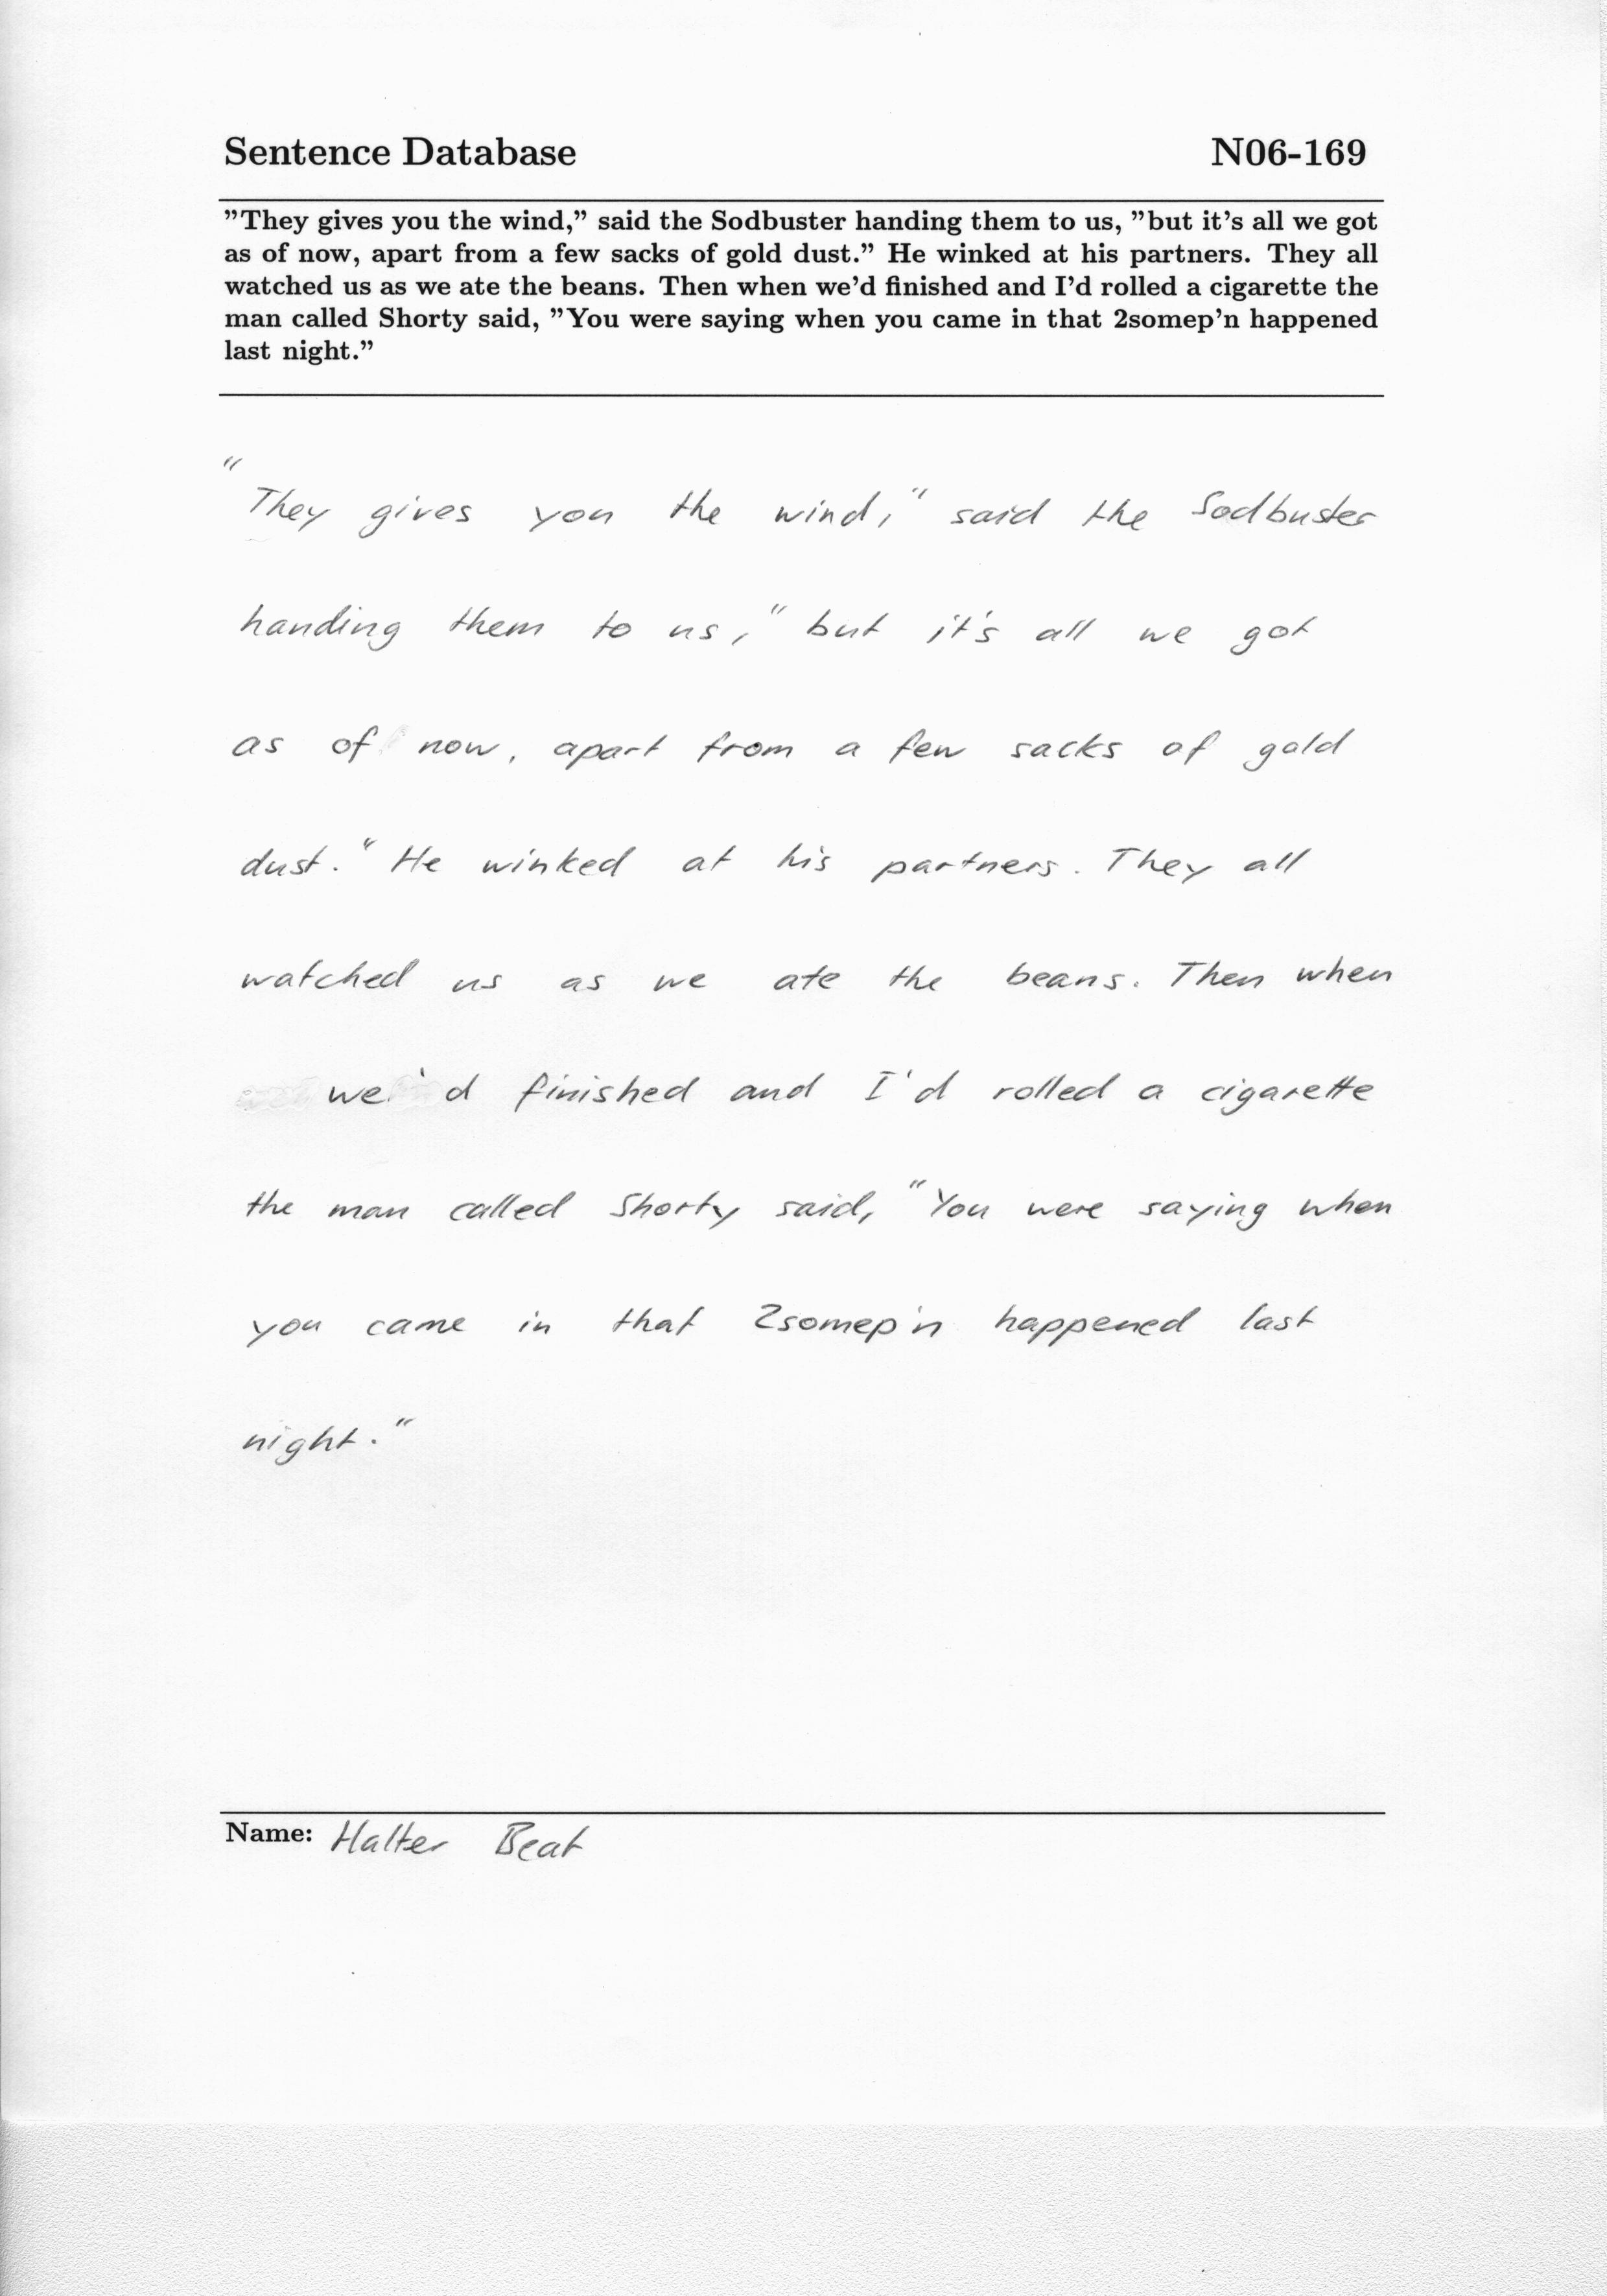 Sentence Database N06-169
”They gives you the wind,” said the Sodbuster handing them to us, ”but it’s all we got
as of now, apart from a few sacks of gold dust.” He winked at his partners. They all
watched us as we ate the beans. Then when we’d finished and I’d rolled a cigarette the
man called Shorty said, ”You were saying when you came in that 2somep’n happened
last night.”
"They gives you the wind," said the Sodbuster
handing them to us," but it's all we got
as of now, apart from a few sacks of gold
dust." He winked at his partners. They all
watched us as we ate the beans. Then when
we'd finished and I'd rolled a cigarette
the man called Shorty said, "You were saying when
you came in that 2somep'n happened last
night."
Name: Halter Beat